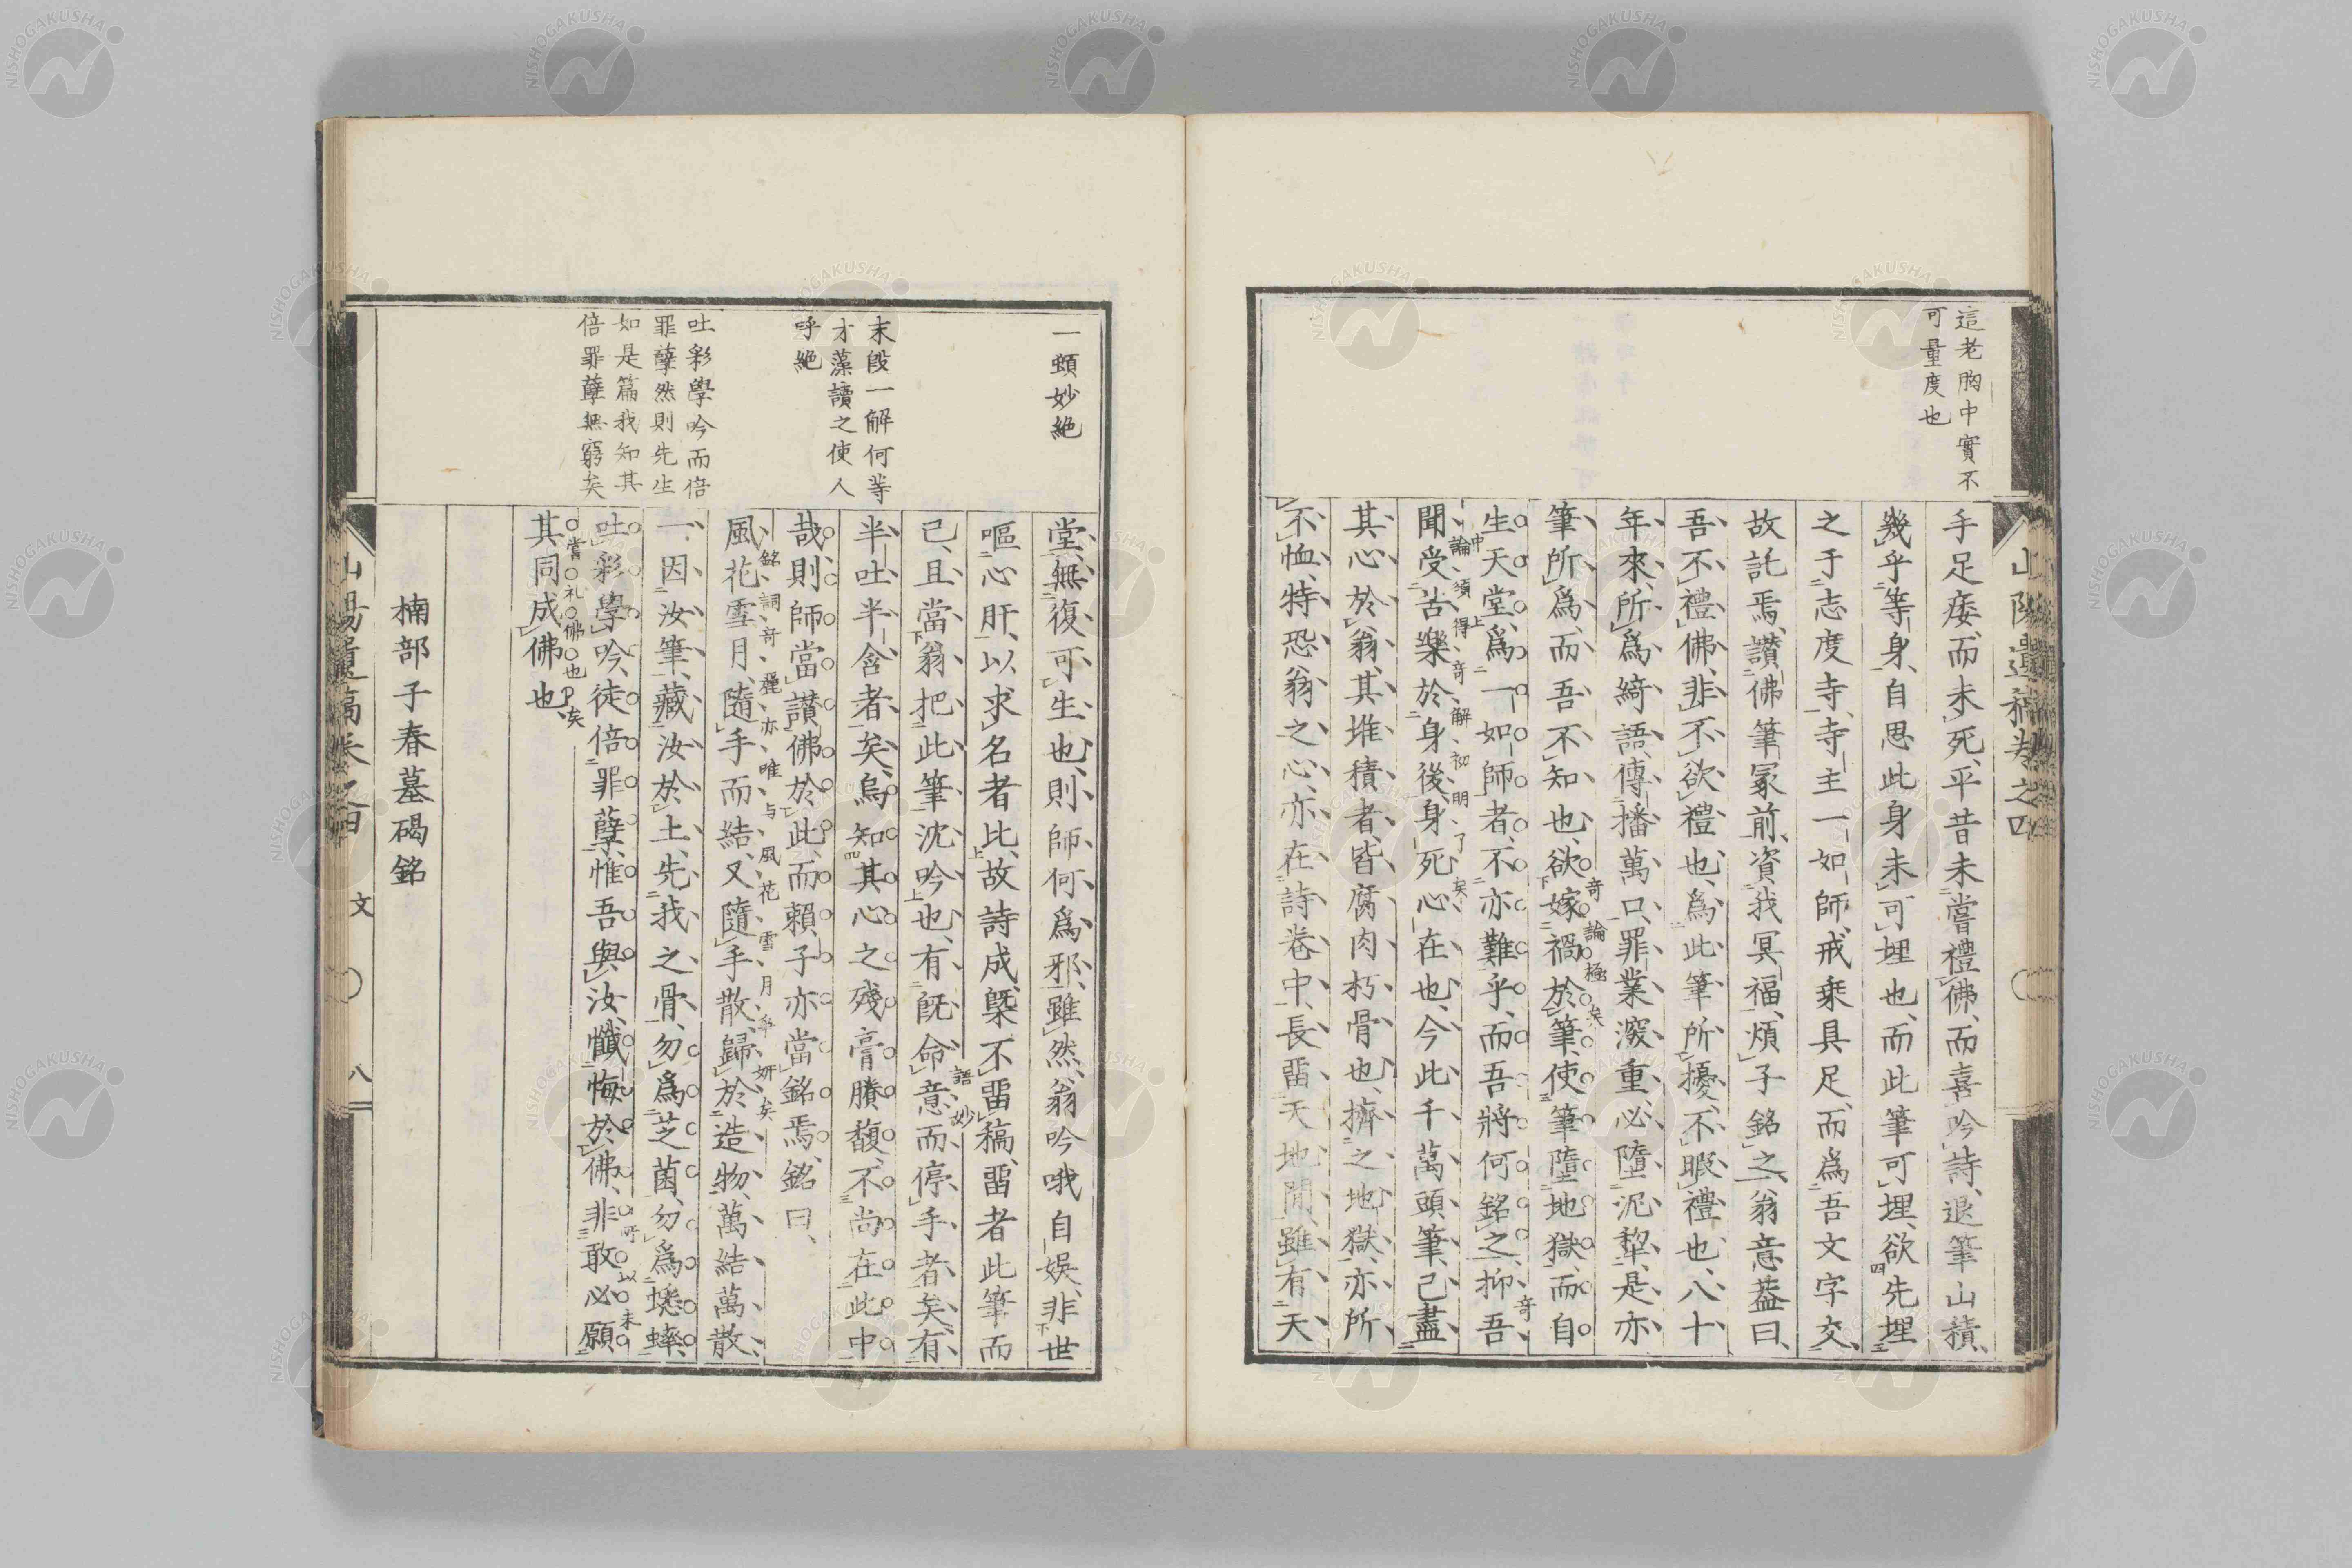 這老胸中實不
可量度也
山陽遺稿卷之四
手足痿而未死平昔未嘗禮佛而喜吟詩退筆山積
幾乎等身自思此身未可埋也而此筆可埋欲先埋
之于志度寺寺主一如師戒乗具足而爲吾文字交
故託焉讃佛筆冢前資我冥福煩子銘之翁意葢曰
吾不禮佛非不欲禮也爲此筆所擾不暇禮也八十
年來所爲綺語傳播萬口罪業深重必墮泥犂是亦
筆所爲而吾不知也欲嫁禍於筆使筆墮地獄而自
奇論極矣
生天堂爲一如師者不亦難乎而吾將何銘之抑吾
奇
中論須得奇解初明了矣
聞受苦樂於身後身死心在也今此千萬頭筆己盡
其心於翁其堆積者皆腐肉朽骨也擠之地獄亦所
不恤特恐翁之心亦在詩卷中長畱天地間雖有天
一頭妙絶
末段一解何等
才藻讀之使人
呼絶
吐彩學吟而倍
罪孽然則先生
如是篇我知其
倍罪孽無窮矣
堂無復可生也則師何爲邪雖然翁吟哦自娯非世
嘔心肝以求名者比故詩成槩不畱稿畱者此筆而
己且當翁把此筆沈吟也有旣命意而停手者矣有
語妙
半吐半含者矣烏知其心之殘膏賸馥不尚在此中
哉則師當讃佛於此而賴子亦當銘焉銘曰
銘詞奇麗亦唯与風花雪月爭妍矣
風花雪月隨手而結又隨手散歸於造物萬結萬散
一因汝筆藏汝於土先我之骨勿爲芝菌勿爲蟋蟀
吐彩學吟徒倍罪孽惟吾與汝懺悔於佛非敢必願
可以未
嘗礼佛也矣
其同成佛也
楠部子春墓碣銘
山陽遺稿卷之四
文
八
NISHOGAKUSHA